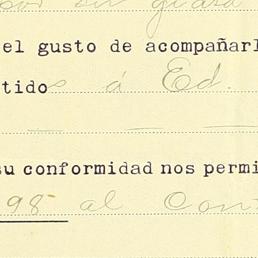 el gusto de acompañarl
tido á Ed.
su conformidad nos permi
98 al Cont